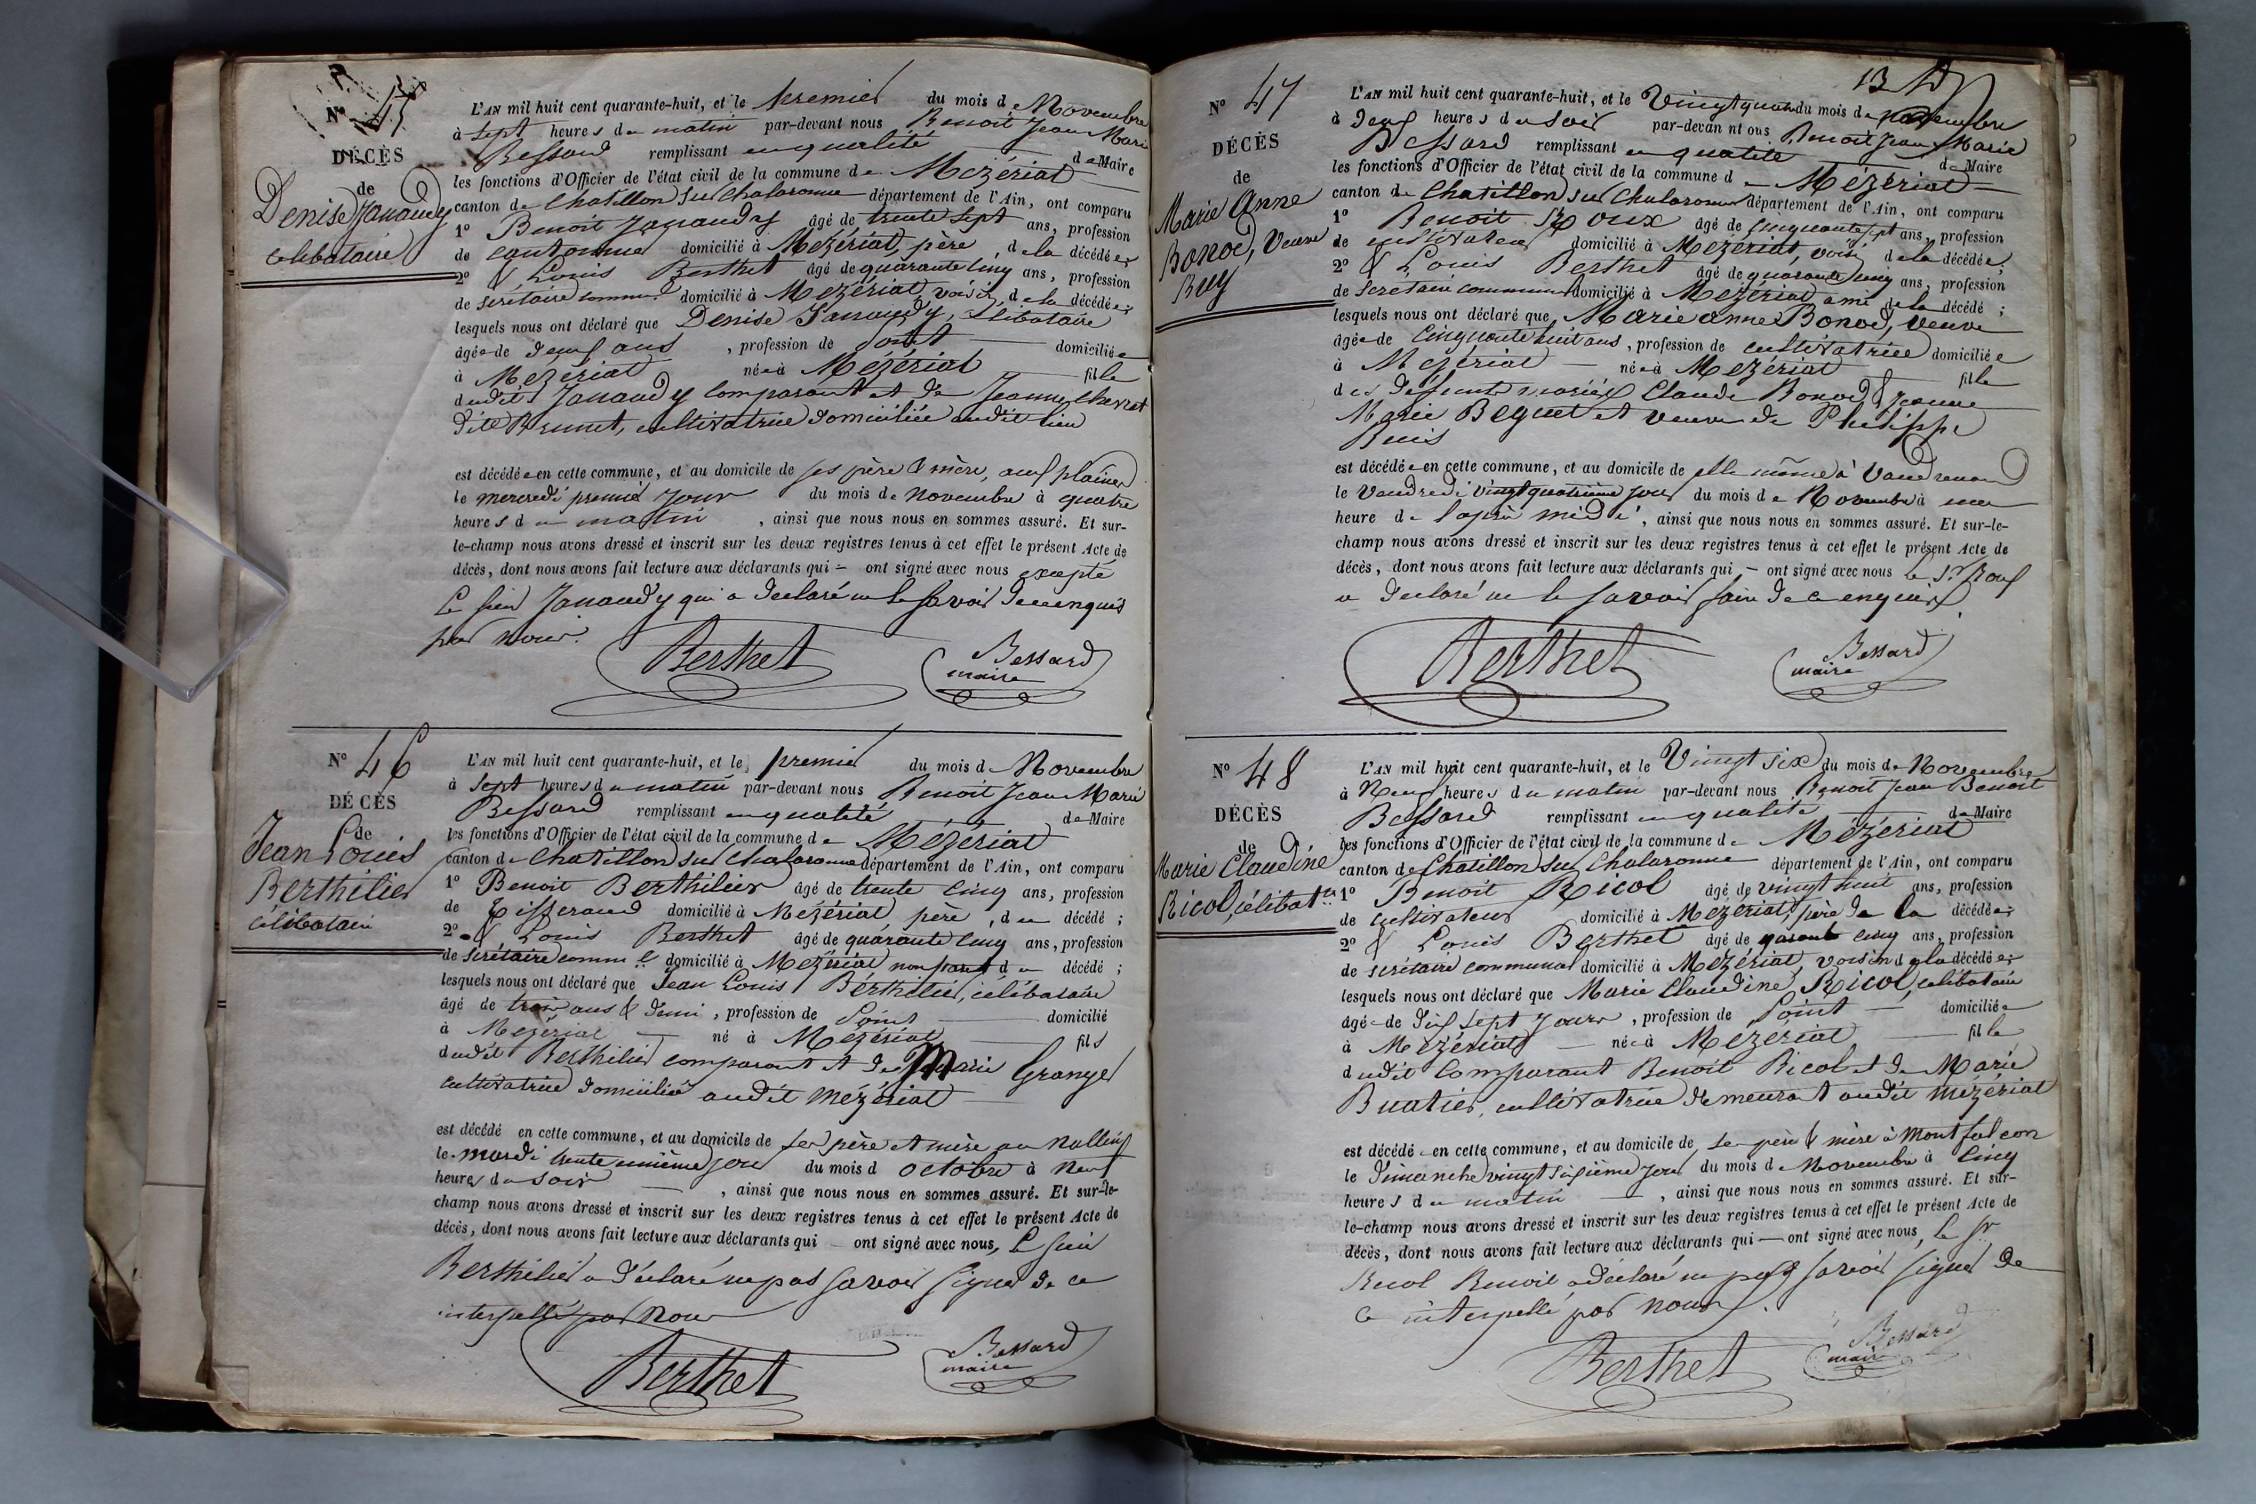 Nº 45
DÉCÈS
de
Denise Janaudy
celibataire
L'AN mil huit cent quarante-huit, et le premier du mois de Novembre
à sept heures du matin par-devant nous Benoit Jean Marie
Bessard remplissant en qualité de Maire
les fonctions d'Officier de l'état civil de la commune de Mézériat
canton de Chatillon sur Chalaronne département de l'Ain, ont comparu
1º Benoit Janaudy âgé de trente sept ans, profession
de cantonnier domicilié à Mézériat, père de la décédée;
2º & Louis Berthet âgé de quarante cinq ans, profession
de secrétaire commun.l domicilié à Mézériat, voisin, de la décédée;
lesquels nous ont déclaré que Denise Janaudy, célibataire
âgée de deux ans, profession de point domiciliée
à Mézériat née à Mézériat fille
dudit Janaudy comparant et de Jeanne Chevrat
dite Brunet, cultivatrice domiciliée audit lieu
est décédée en cette commune, et au domicile de ses père & mère, aux plaines
le mercredi premier jour du mois de Novembre à quatre
heures du matin, ainsi que nous nous en sommes assuré. Et sur-
le-champ nous avons dressé et inscrit sur les deux registres tenus à cet effet le présent Acte de
décès, dont nous avons fait lecture aux déclarants qui ont signé avec nous excepté
le sieur Janaudy qui a déclaré ne le savoir de ce enquis
par nous.
Berthet Bessard
maire
Nº 46
DÉCÈS
de
Jean Louis
Berthilier
célibataire
L'AN mil huit cent quarante-huit, et le premier du mois de Novembre
à sept heures du matin par-devant nous Benoit Jean Marie
Bessard remplissant en qualité de Maire
les fonctions d'Officier de l'état civil de la commune de Mézériat
canton de Chatillon sur Chalaronne département de l'Ain, ont comparu
1º Benoit Berthilier âgé de trente cinq ans, profession
de Tisserand domicilié à Mézériat père, du décédé;
2º & Louis Berthet âgé de quarante cinq ans, profession
de secrétaire comm.l domicilié à Mézériat non parent du décédé;
lesquels nous ont déclaré que Jean Louis Berthilier, célibataire
âgé de trois ans & demi, profession de point domicilié
à Mézériat né à Mézériat fils
dudit Berthilier comparant et de Marie Granger
cultivatrice domiciliée audit Mézériat
est décédé en cette commune, et au domicile de ses père et mère au
le mardi trente unième jour du mois d octobre à neuf
heures du soir, ainsi que nous nous en sommes assuré. Et sur-le-
champ nous avons dressé et inscrit sur les deux registres tenus à cet effet le présent Acte de
décès, dont nous avons fait lecture aux déclarants qui ont signé avec nous, le sieur
Berthilier a déclaré ne pas savoir signer de ce
interpellé par nous
Berthet Bessard
maire
13
Nº 47
DÉCÈS
de
Marie Anne
Bonod, Veuve
Buy
L'AN mil huit cent quarante-huit, et le Vingt quatre du mois de Novembre
à deux heures du soir par-devant nous Benoit Jean Marie
Bessard remplissant en qualité de Maire
les fonctions d'Officier de l'état civil de la commune de Mézériat
canton de Chatillon sur Chalaronne département de l'Ain, ont comparu
1º Benoit Roux âgé de cinquante sept ans, profession
de cultivateur domicilié à Mézériat, voisin de la décédée;
2º & Louis Berthet âgé de quarante cinq ans, profession
de secrétaire communal domicilié à Mézériat ami de la décédé;
lesquels nous ont déclaré que Marie anne Bonod, veuve
âgée de cinquante huit ans, profession de cultivatrice domiciliée
à Mézériat née à Mézériat fille
des défunts mariés Claude Bonod & Jeanne
Marie Beguet et veuve de Philippe
Buis
est décédée en cette commune, et au domicile de elle même à
le Vendredi vingt quatrième jour du mois de Novembre à une
heure de l'après midi, ainsi que nous nous en sommes assuré. Et sur-le-
champ nous avons dressé et inscrit sur les deux registres tenus à cet effet le présent Acte de
décès, dont nous avons fait lecture aux déclarants qui ont signé avec nous le Sr Roux
a déclaré ne le savoir faire de ce enquis.
Berthet Bessard
maire
Nº 48
DÉCÈS
de
Marie Claudine
Ricol, célibat.re
L'AN mil huit cent quarante-huit, et le Vingt six du mois de Novembre
à Neuf heures du matin par-devant nous Benoit Jean Benoit
Bessard remplissant en qualité de Maire
les fonctions d'Officier de l'état civil de la commune de Mézériat
canton de Chatillon sur Chalaronne département de l'Ain, ont comparu
1º Benoit Ricol âgé de vingt huit ans, profession
de cultivateur domicilié à Mézériat, père de la décédée;
2º & Louis Berthet âgé de quarante cinq ans, profession
de secrétaire communal domicilié à Mézériat, voisin de la décédée;
lesquels nous ont déclaré que Marie Claudine Ricol, célibataire
âgée de dix sept jours, profession de point domiciliée
à Mézériat née à Mézériat fille
dudit comparant Benoit Ricol et de Marie
Buatier, cultivatrice demeurant audit Mézériat
est décédée en cette commune, et au domicile de ses père & mère à Montfalcon
le dimanche vingt sixième jour du mois de Novembre à cinq
heures du matin, ainsi que nous nous en sommes assuré. Et sur-
le-champ nous avons dressé et inscrit sur les deux registres tenus à cet effet le présent Acte de
décès, dont nous avons fait lecture aux déclarants qui ont signé avec nous, le Sr
Ricol Benoit a déclaré ne pas savoir signer de
ce interpellé par nous.
Berthet Bessard
maire